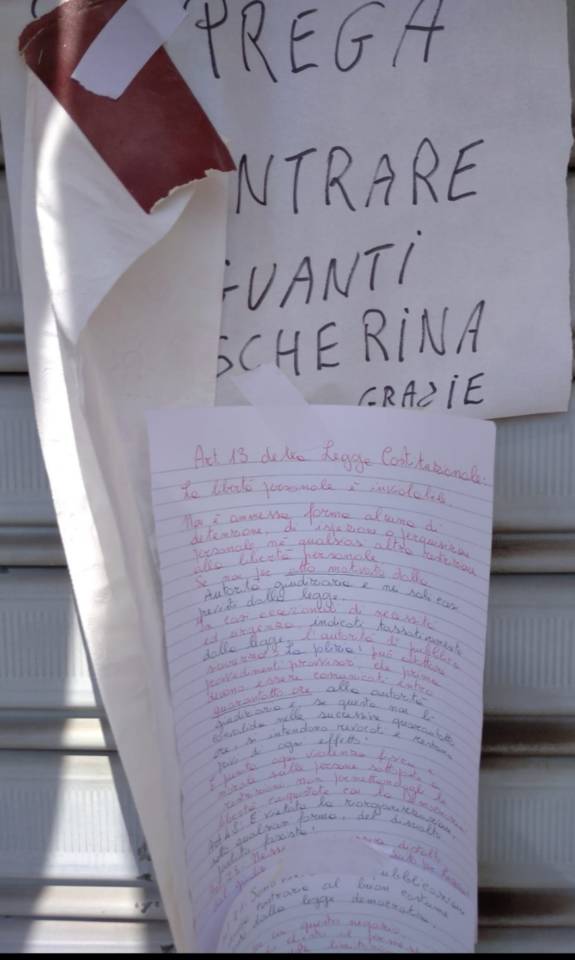 PREGA
NTRARE
GUANTI
SCHERINA
GRAZIE
Art 13 della Legge Costituzionale:
La libertà personale è inviolabile.
Non è ammessa forma alcuna di
detenzione, di ispezione o perquisizione
personale né qualsiasi altra restrizione
alla libertà personale
Se non per atto motivato dalla
Autorità giudiziaria e nei soli casi
previsti dalla legge.
In casi eccezionali di necessità
ed urgenza indicati tassativamente
dalla legge, l'autorità di pubblica
sicurezza "La polizia" può adottare
provvedimenti provvisori, che
devono essere comunicati entro
quarantotto ore alla autorità
giudiziaria e se questa non li
convalida nelle successive quarantotto
ore, si intendono revocati e restano
privi di ogni effetto.
È punita ogni violenza fisica e
morale sulle persone sottoposte a
restrizioni
È vietata la riorganizzazione
sotto qualsiasi forma, del disciolto
partito fascista!
pubblicazioni
contrarie al buon costume
dalla legge democratica
in questo negozio